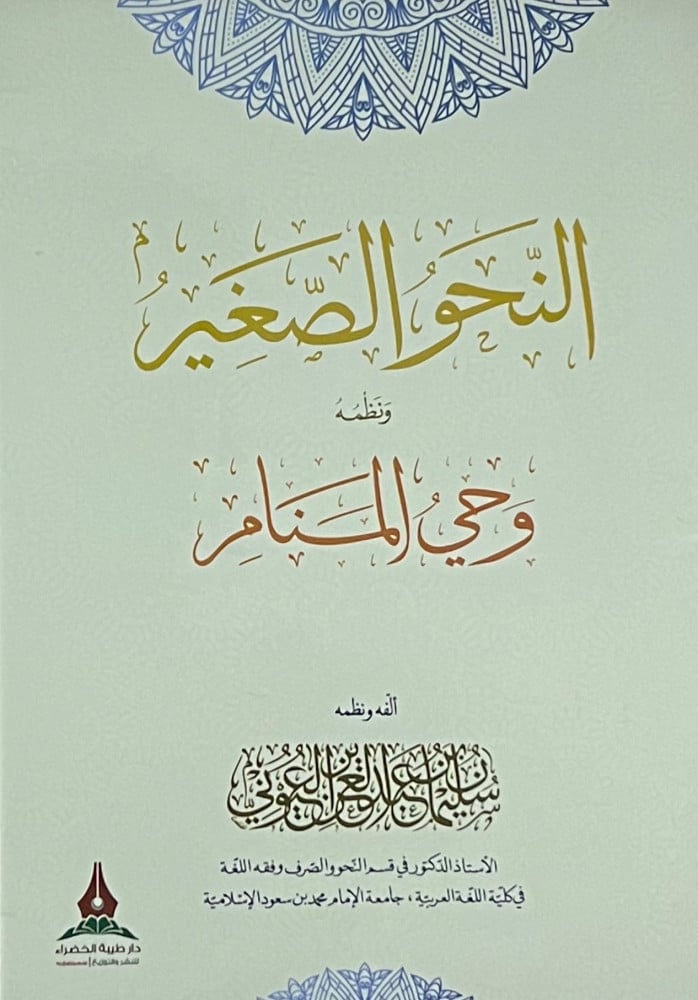 النَّحْوُ الصَّغِيرُ
وَنَظْمُهُ
وَحْيُ الْمَنَامِ
ألّفه ونظمه
سُلَيْمَانُ بْنُ عَبْدِ الْعَزِيزِ الْعُيُونِيُّ
الأستاذ الدكتور في قسم النّحو والصّرف وفقه اللغة
في كليّة اللغة العربيّة ، جامعة الإمام محمد بن سعود الإسلاميّة
دار طيبة الخضراء
للنشر والتوزيع